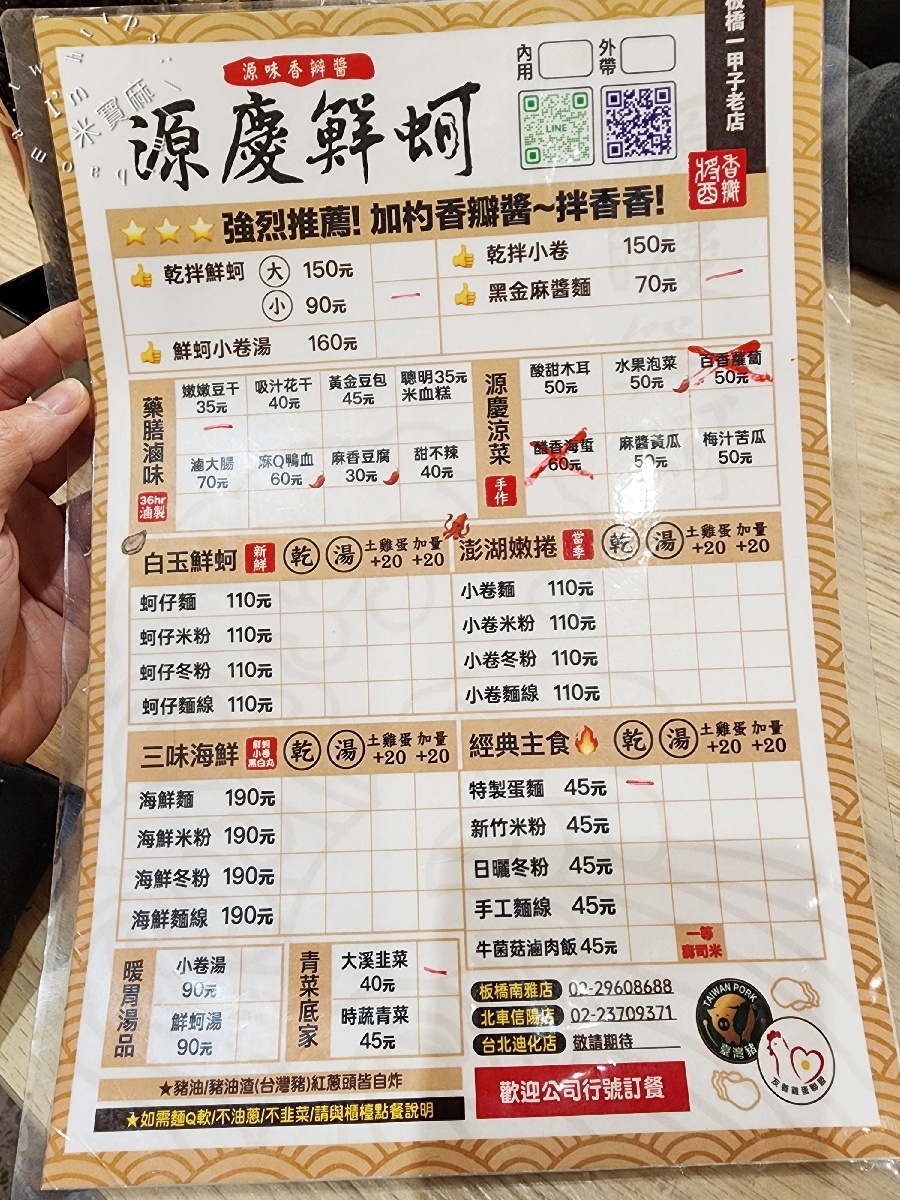 I'm
米寶麻
板橋一甲子老店
源味香瓣醬
源慶鮮蚵
內用
外帶
LINE
香瓣醬
強烈推薦! 加杓香瓣醬~拌香香!
乾拌鮮蚵 大 150元
小 90元
鮮蚵小卷湯 160元
乾拌小卷 150元
黑金麻醬麵 70元
藥膳滷味
36hr滷製
嫩嫩豆干 35元
吸汁花干 40元
黃金豆包 45元
聰明米血糕 35元
滷大腸 70元
麻Q鴨血 60元
麻香豆腐 30元
甜不辣 40元
源慶涼菜
手作
酸甜木耳 50元
水果泡菜 50元
百香蘿蔔 50元
醋香海蜇 60元
麻醬黃瓜 50元
梅汁苦瓜 50元
白玉鮮蚵 新鮮 乾 湯 土雞蛋+20 加量+20
蚵仔麵 110元
蚵仔米粉 110元
蚵仔冬粉 110元
蚵仔麵線 110元
澎湖嫩捲 當季 乾 湯 土雞蛋+20 加量+20
小卷麵 110元
小卷米粉 110元
小卷冬粉 110元
小卷麵線 110元
三味海鮮 鮮蚵小卷黑白丸 乾 湯 土雞蛋+20 加量+20
海鮮麵 190元
海鮮米粉 190元
海鮮冬粉 190元
海鮮麵線 190元
經典主食 乾 湯 土雞蛋+20 加量+20
特製蛋麵 45元
新竹米粉 45元
日曬冬粉 45元
手工麵線 45元
牛菌菇滷肉飯 45元 一等壽司米
暖胃湯品
小卷湯 90元
鮮蚵湯 90元
青菜底家
大溪韭菜 40元
時蔬青菜 45元
板橋南雅店 02-29608688
北車信陽店 02-23709371
台北迪化店 敬請期待
TAIWAN PORK
臺灣豬
歡迎公司行號訂餐
★豬油/豬油渣(台灣豬)紅蔥頭皆自炸
★如需麵Q軟/不油蔥/不韭菜/請與櫃檯點餐說明